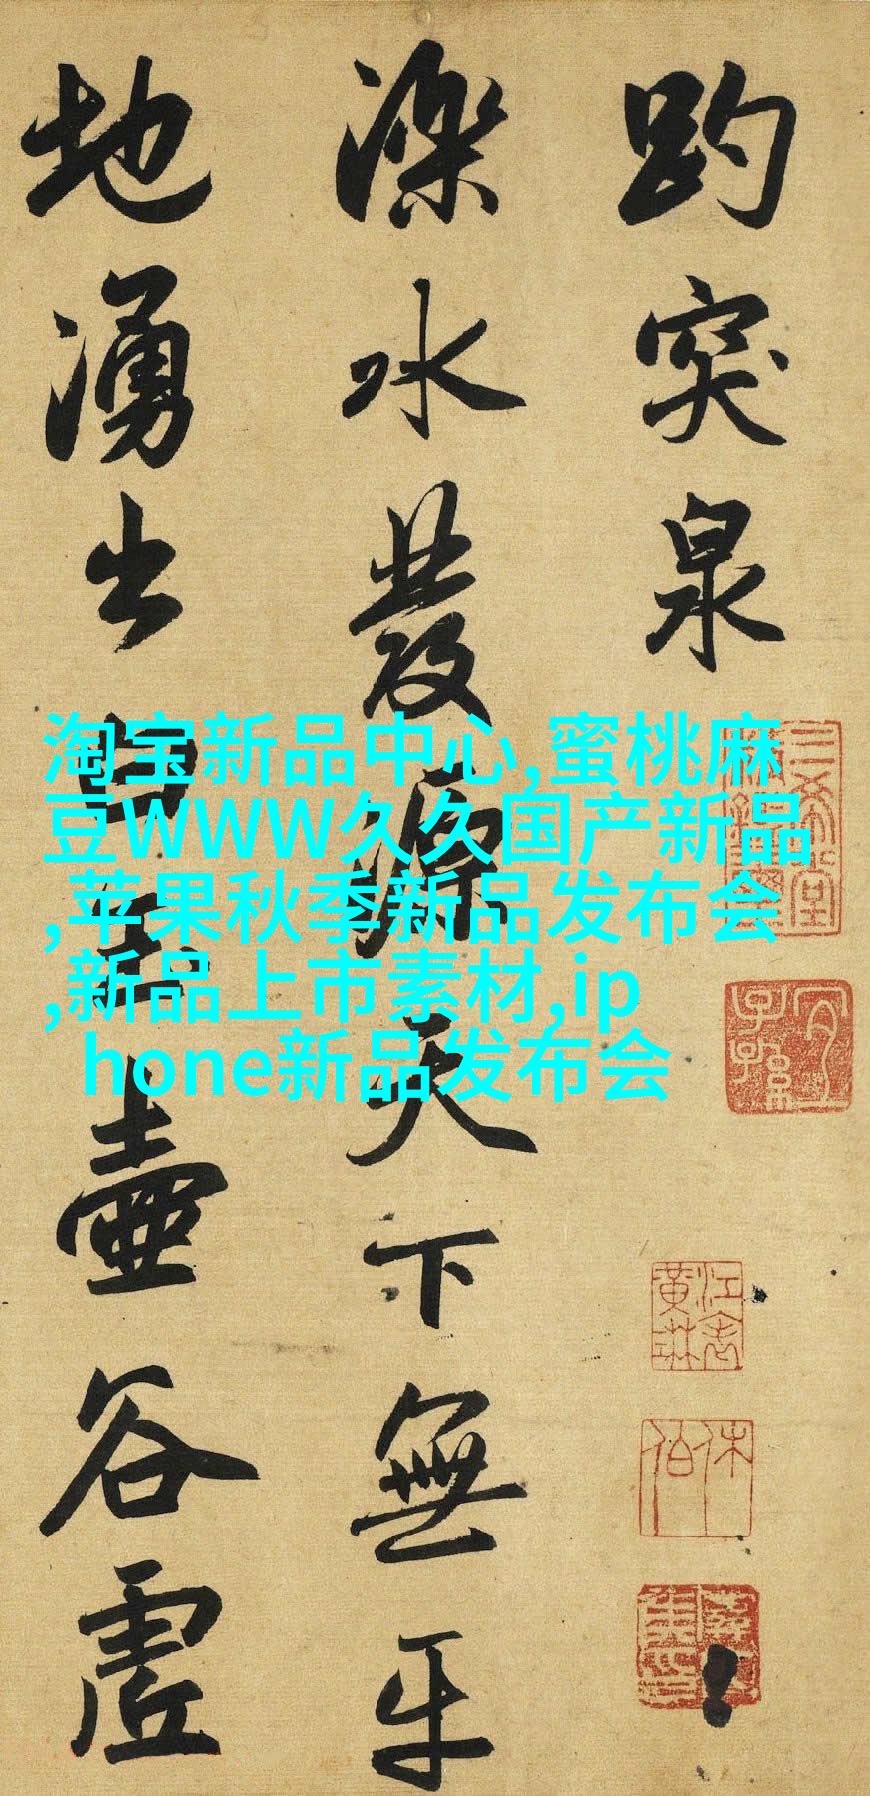 趵突泉
濼水發源天下無平
地湧出白玉壺谷虛
淘宝新品中心,蜜桃麻
豆WWW久久国产新品
,苹果秋季新品发布会
,新品上市素材,ip
hone新品发布会
三希堂精鑑璽
宜子孫
江表黃琳
休伯